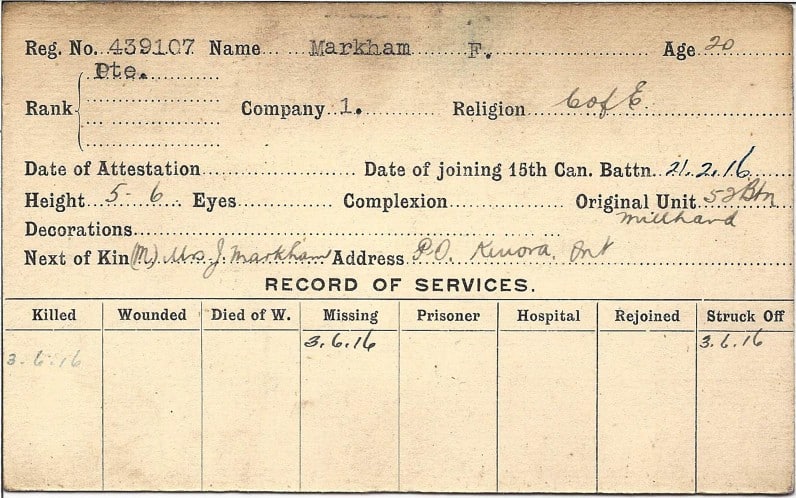 Reg. No. 439107 Name Markham F. Age 20
Pte.
Rank Company 1. Religion C of E
Date of Attestation Date of joining 15th Can. Battn. 21.2.16
Height 5-6 Eyes Complexion Original Unit 52 Btn
millhand
Decorations
Next of Kin (M) Mrs J. Markham Address P.O. Kenora, Ont
RECORD OF SERVICES.
Killed Wounded Died of W. Missing Prisoner Hospital Rejoined Struck Off
3.6.16 3.6.16
3.6.16